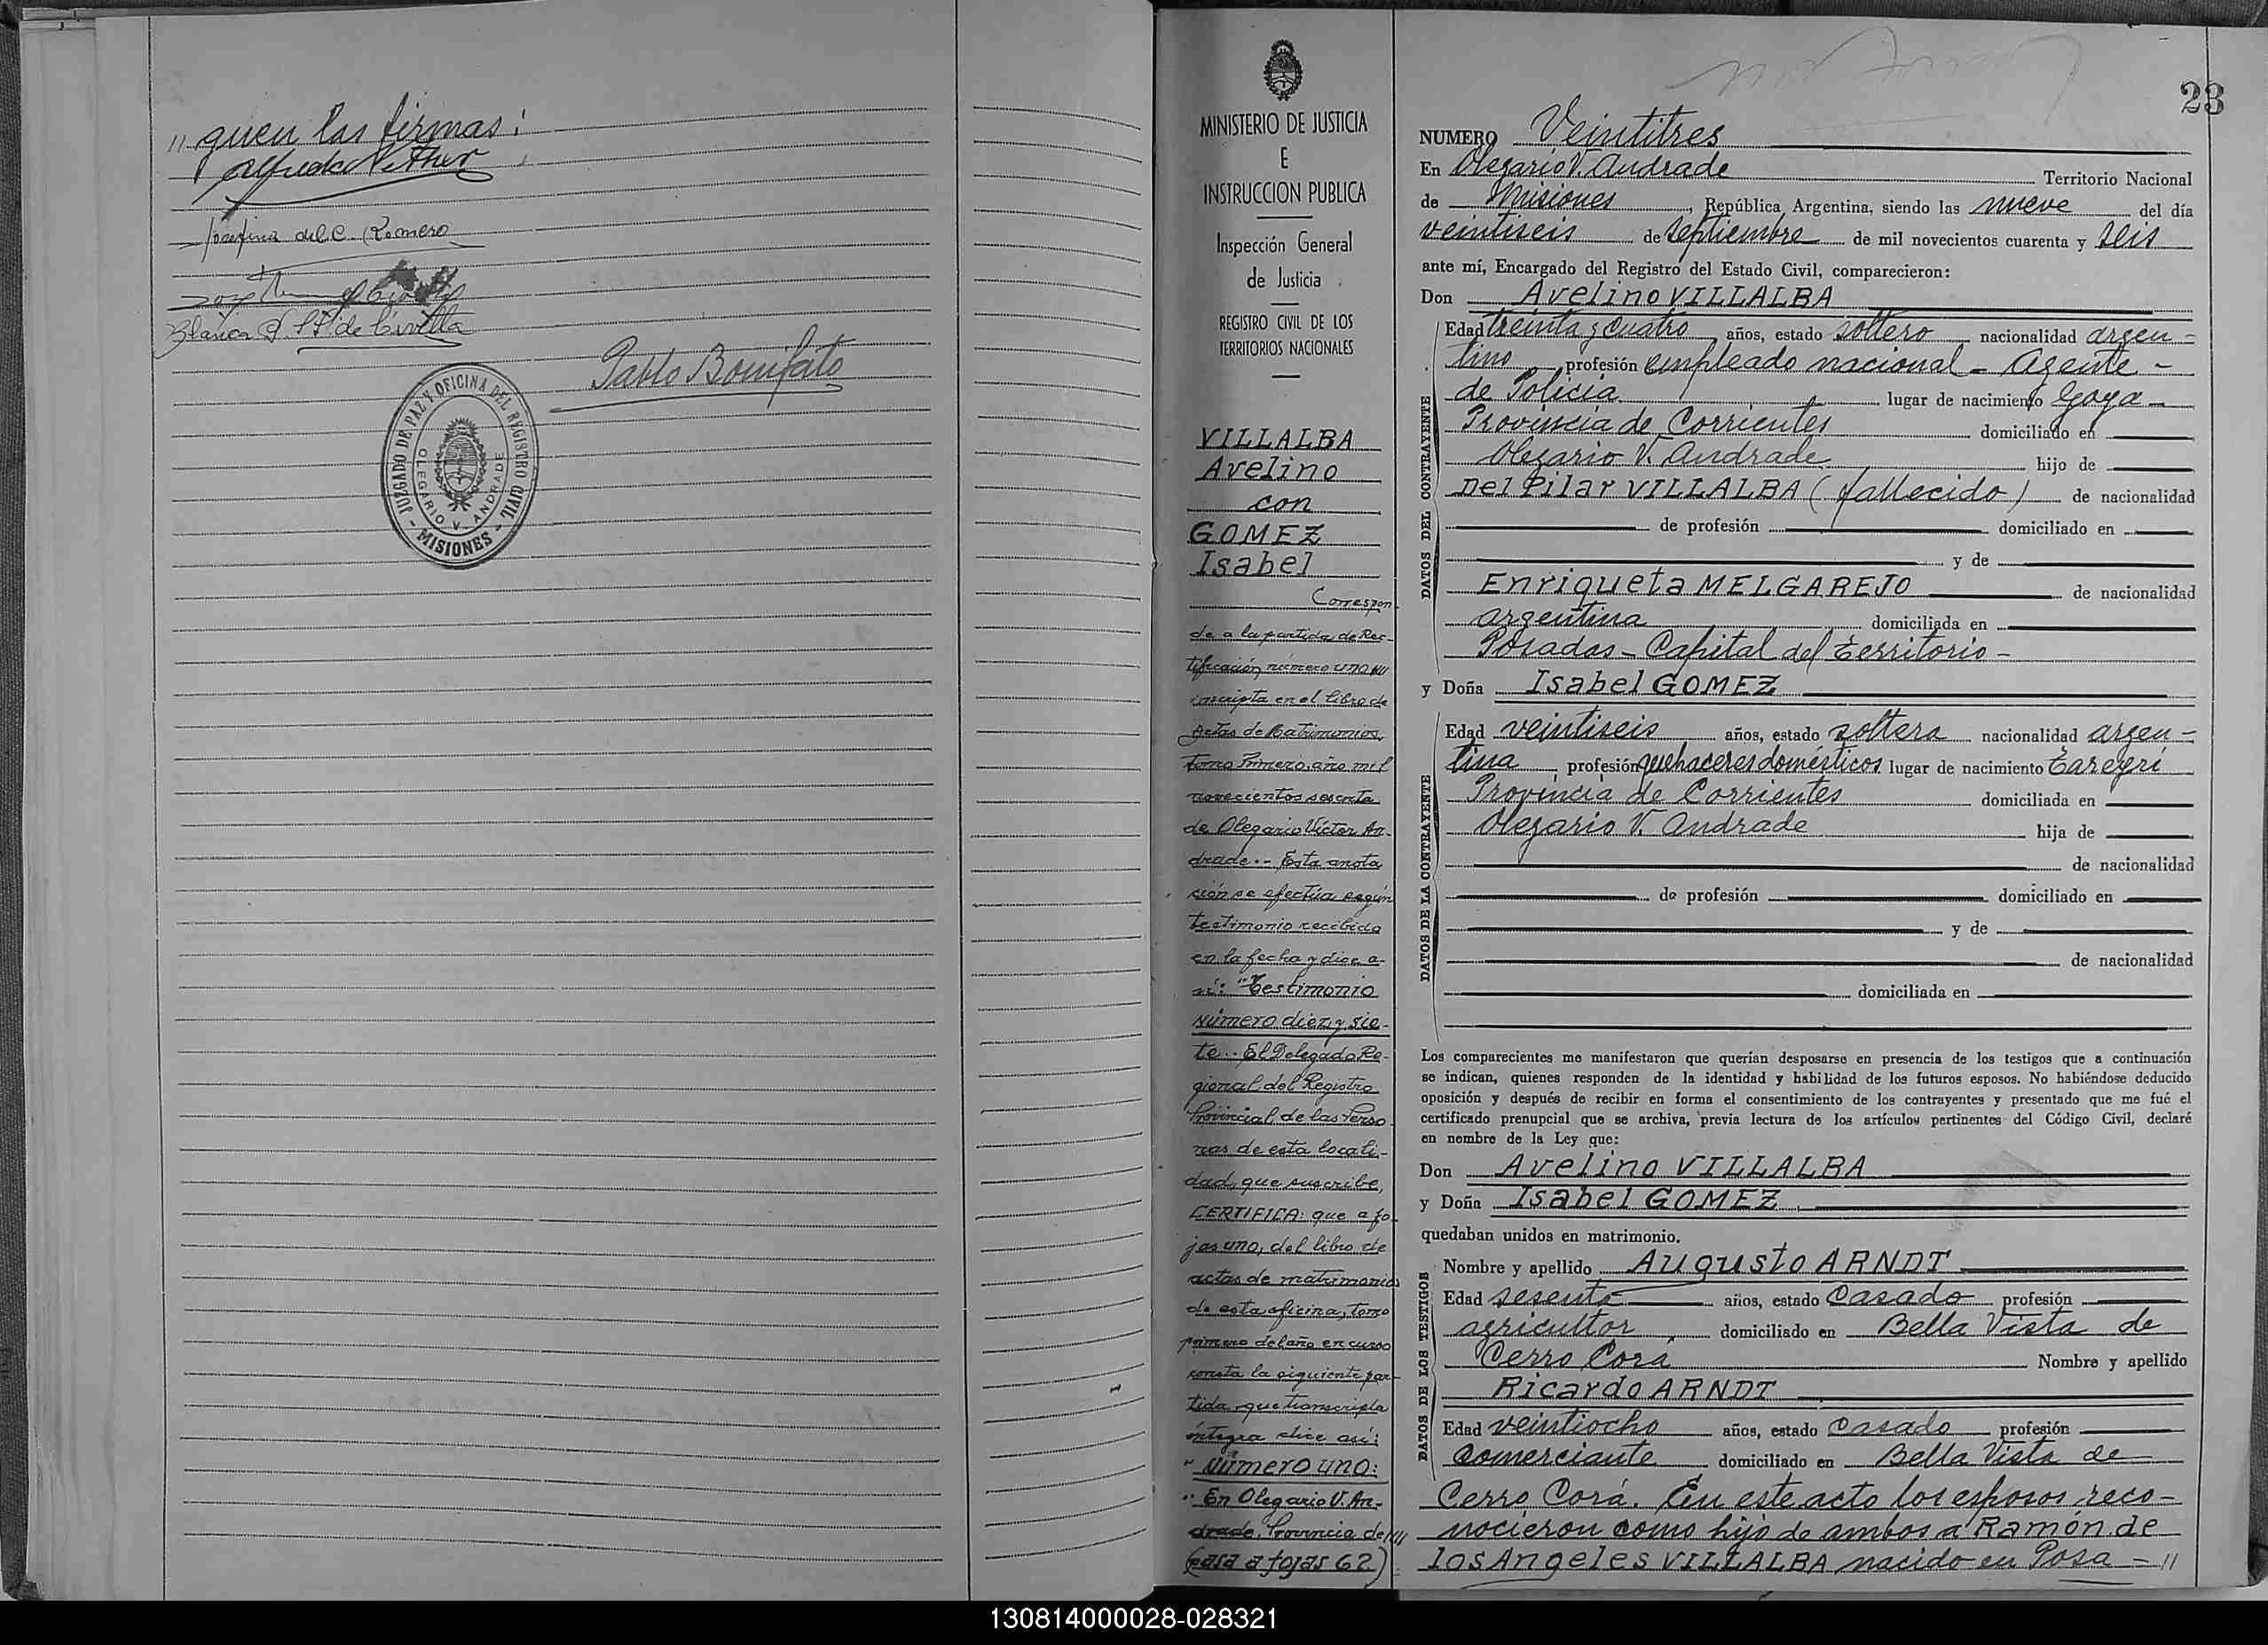 // guen las firmas:
Josefina del C. Romero
Pablo Bonifato
JUZGADO DE PAZ Y OFICINA DEL REGISTRO CIVIL
OLEGARIO V. ANDRADE
- MISIONES -
MINISTERIO DE JUSTICIA
E
INSTRUCCION PUBLICA
Inspección General
de Justicia
REGISTRO CIVIL DE LOS
TERRITORIOS NACIONALES
VILLALBA
Avelino
con
GOMEZ
Isabel
Correspon
de a la partida de Rec-
tificación número uno
inscripta en el libro de
actas de Matrimonios,
tomo Primero, año mil
novecientos sesenta
de Olegario Víctor An-
drade.- Esta anota
ción se efectúa según
testimonio recibido
en la fecha y dice a-
sí: "Testimonio
Número diez y sie-
te.- El Delegado Re-
gional del Registro
Provincial de las Perso
nas de esta locali-
dad, que suscribe,
CERTIFICA: que a fo
jas uno, del libro de
actas de matrimonios
de esta oficina, tomo
primero del año en curso
consta la siguiente par-
tida, que transcripta
íntegra dice así:
" Número uno:
" En Olegario V. An-
drade, Provincia de ///
(pasa a fojas 62)
23
NUMERO Veintitres
En Olegario V. Andrade Territorio Nacional
de Misiones, República Argentina, siendo las nueve del día
veintiseis de Septiembre de mil novecientos cuarenta y seis
ante mí, Encargado del Registro del Estado Civil, comparecieron:
Don Avelino VILLALBA
DATOS DEL CONTRAYENTE
Edad treinta y cuatro años, estado soltero nacionalidad argen-
tino profesión empleado nacional - Agente -
de Policía lugar de nacimiento Goya
Provincia de Corrientes domiciliado en
Olegario V. Andrade hijo de
Del Pilar VILLALBA (fallecido) de nacionalidad
de profesión domiciliado en
y de
Enriqueta MELGAREJO de nacionalidad
argentina domiciliada en
Posadas - Capital del Territorio -
y Doña Isabel GOMEZ
DATOS DE LA CONTRAYENTE
Edad veintiseis años, estado soltera nacionalidad argen-
tina, profesión quehaceres domésticos lugar de nacimiento Caregrí
Provincia de Corrientes domiciliada en
Olegario V. Andrade hija de
de nacionalidad
de profesión domiciliado en
y de
de nacionalidad
domiciliada en
Los comparecientes me manifestaron que querían desposarse en presencia de los testigos que a continuación
se indican, quienes responden de la identidad y habilidad de los futuros esposos. No habiéndose deducido
oposición y después de recibir en forma el consentimiento de los contrayentes y presentado que me fué el
certificado prenupcial que se archiva, previa lectura de los artículos pertinentes del Código Civil, declaré
en nombre de la Ley que:
Don Avelino VILLALBA
y Doña Isabel GOMEZ
quedaban unidos en matrimonio.
DATOS DE LOS TESTIGOS
Nombre y apellido Augusto ARNDT
Edad sesenta años, estado Casado profesión
agricultor, domiciliado en Bella Vista de
Cerro Corá Nombre y apellido
Ricardo ARNDT
Edad veintiocho años, estado Casado profesión
Comerciante domiciliado en Bella Vista de
Cerro Corá. En este acto los esposos reco-
nocieron como hijo de ambos a Ramón de
los Angeles VILLALBA nacido en Posa - //
130814000028-028321